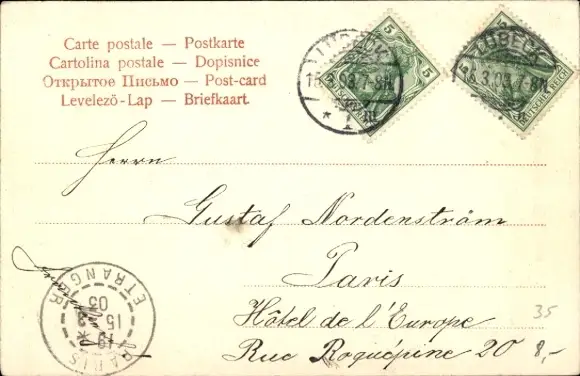 Carte postale — Postkarte
Cartolina postale — Dopisnice
Открытое Письмо — Post-card
Levelező-Lap — Briefkaart
5 5
LÜBECK
15.3.03.7-8N.
* 1
5 5
DEUTSCHES REICH
LÜBECK
3.03.7-8N.
DEUTSCHES REICH
Herrn
Gustaf Nordenström
Paris
Hôtel de l'Europe
Rue Roquépine 20
35
8,-
PARIS
ETRANGER
15
03